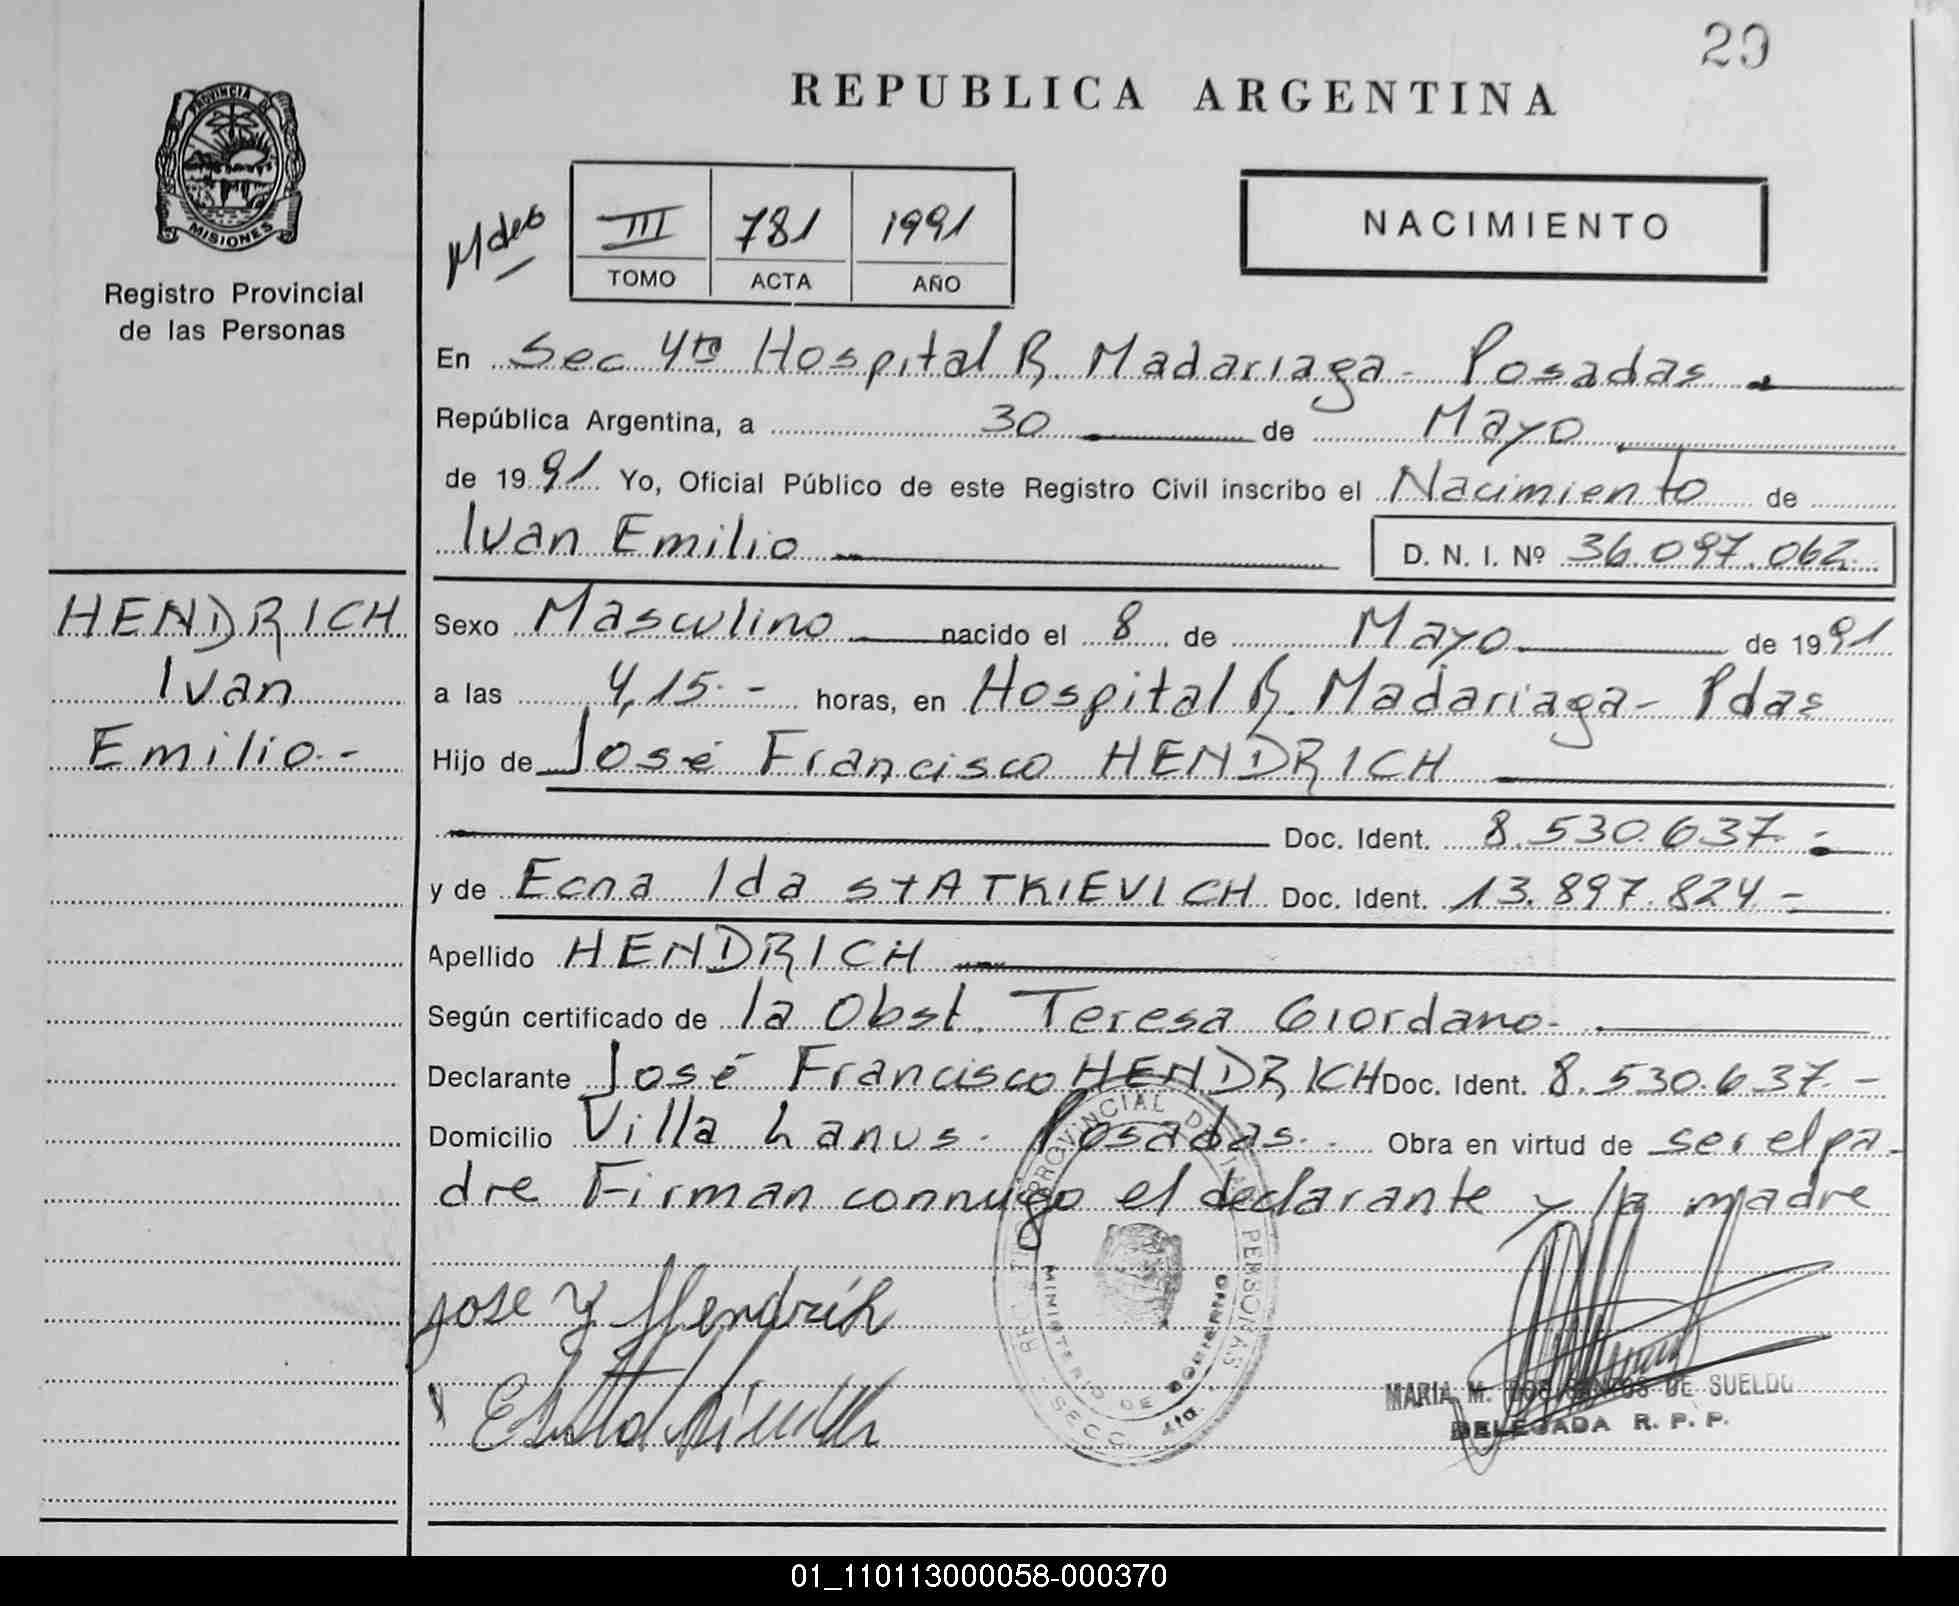 20
PROVINCIA DE
MISIONES
Registro Provincial
de las Personas
REPUBLICA ARGENTINA
III 781 1991
TOMO ACTA AÑO
NACIMIENTO
En Sec 4ta Hospital R. Madariaga - Posadas
República Argentina, a 30 de Mayo
de 1991 Yo, Oficial Público de este Registro Civil inscribo el Nacimiento de
Ivan Emilio D. N. I. Nº 36.097.062
HENDRICH
Ivan
Emilio.-
Sexo Masculino nacido el 8 de Mayo de 1991
a las 4,15.- horas, en Hospital R. Madariaga - Pdas
Hijo de José Francisco HENDRICH
Doc. Ident. 8.530.637.-
y de Ecna Ida STATKIEVICH Doc. Ident. 13.897.824.-
Apellido HENDRICH
Según certificado de la Obst. Teresa Giordano.
Declarante José Francisco HENDRICH Doc. Ident. 8.530.637.-
Domicilio Villa Lanus. Posadas.. Obra en virtud de ser el pa-
dre Firman conmigo el declarante y la madre
Jose Hendrich
PROVINCIAL DE LAS PERSONAS
MINISTERIO DE GOBIERNO
SECC. 4ta.
MARIA M. DOS SANTOS DE SUELDO
DELEGADA R. P. P.
01_110113000058-000370